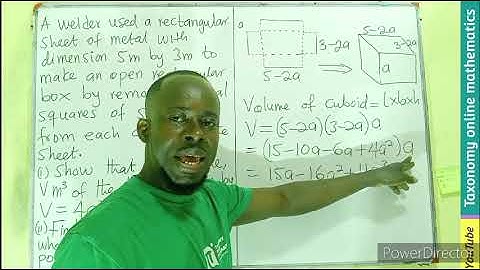 A welder used a rectangular
sheet of metal with
dimension 5m by 3m to
make an open
box by
squares of
from each
sheet.
(i) Show that
V m³ of the
V = 4
a
3-2a
5-2a
5-2a
3-2a
a
Volume of cuboid = LxbxH
V = (5-2a)(3-2a)a
= (15-10a-6a+4a²)a
= 15a-16a²+4a³
Taxonomy online mathematics
YouTube
PowerDirector